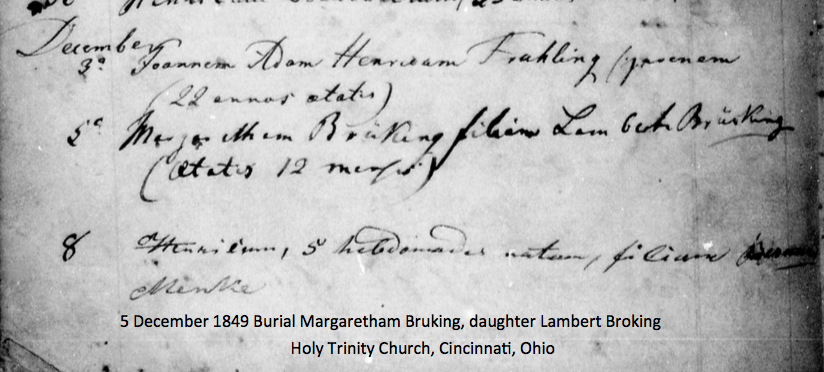 December
3ª Joannem Adam Henricum Frahling (juvenem
(22 annos ætatis)
5ª Margaretham Brüking filiam Lamberti Brüking
(ætatis 12 mensis)
8 Henricum, 5 hebdomades natum, filium
Menke
5 December 1849 Burial Margaretham Bruking, daughter Lambert Broking
Holy Trinity Church, Cincinnati, Ohio